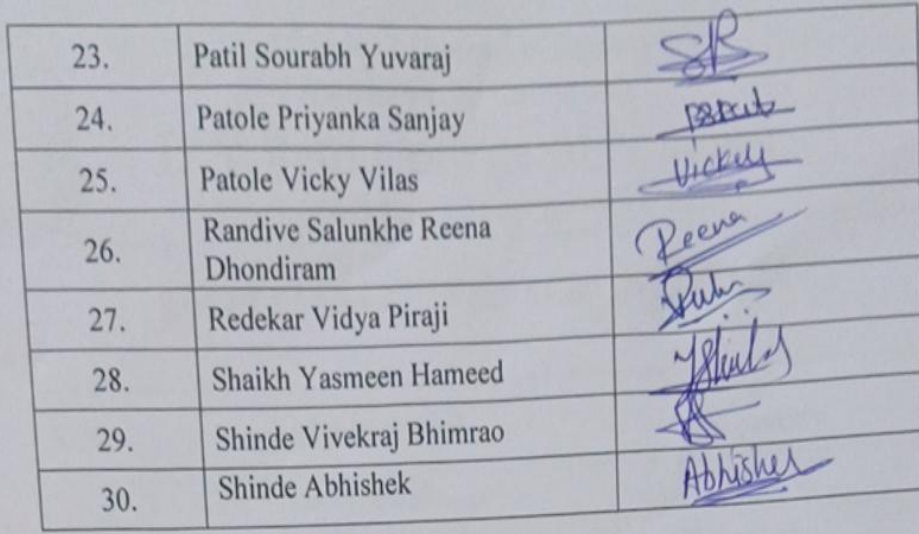 23. Patil Sourabh Yuvaraj
24. Patole Priyanka Sanjay
25. Patole Vicky Vilas Vickey
26. Randive Salunkhe Reena Reena
Dhondiram
27. Redekar Vidya Piraji
28. Shaikh Yasmeen Hameed
29. Shinde Vivekraj Bhimrao
30. Shinde Abhishek Abhishek